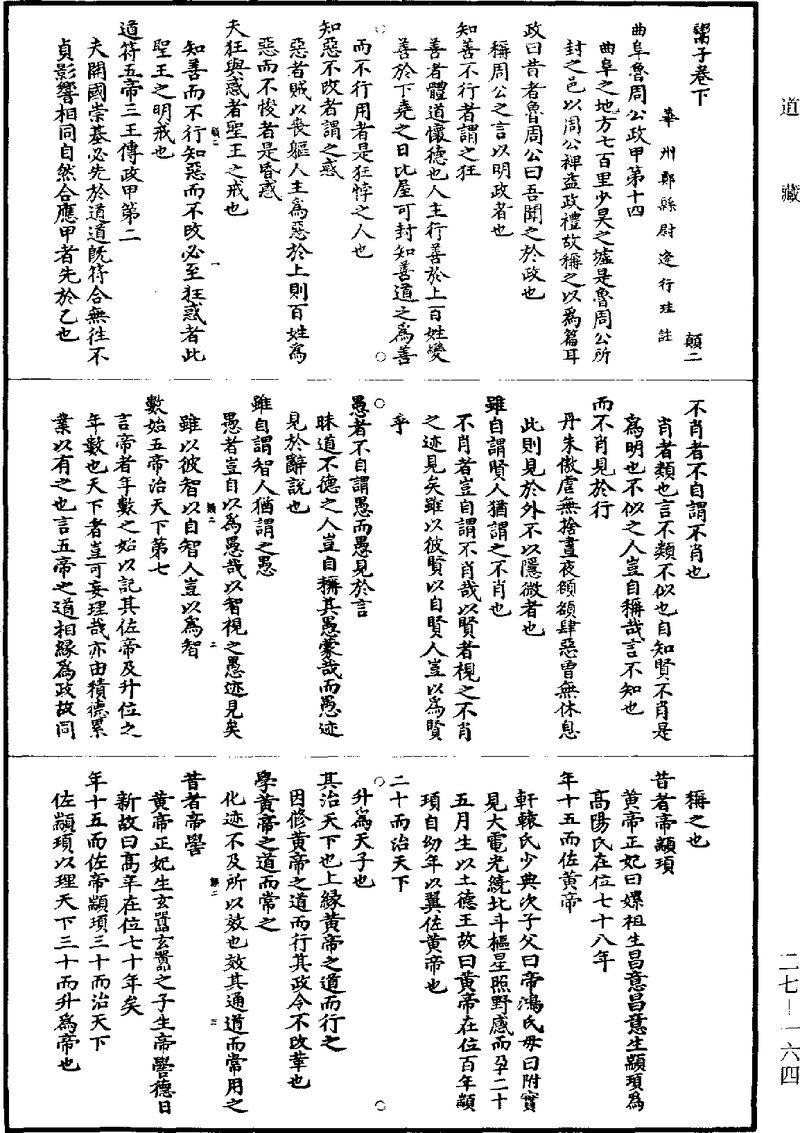 道藏
鬻子卷下
顛二
華州鄭縣尉逄行珪註
曲阜魯周公政甲第十四
曲阜之地方七百里少昊之墟是魯周公所
封之邑以周公裨益政禮故稱之以為篇耳
政曰昔者魯周公曰吾聞之於政也
稱周公之言以明政者也
知善不行者謂之狂
善者體道懷德也人主行善於上百姓變
善於下堯之日比屋可封知善道之為善
而不行用者是狂悖之人也
知惡不改者謂之惑
惡者賊以喪軀人主為惡於上則百姓為
惡而不悛者是昏惑
夫狂與惑者聖王之戒也
顛二
一
知善而不行知惡而不改必至狂惑者此
聖王之明戒也
道符五帝三王傳政甲第二
夫開國崇基必先於道道旣符合無往不
貞影響相同自然合應甲者先於乙也
不肖者不自謂不肖也
肖者類也言不類不似也自知賢不肖是
為明也不似之人豈自稱哉言不知也
而不肖見於行
丹朱傲虐無捨晝夜頟頟肆惡曾無休息
此則見於外不以隱微者也
雖自謂賢人猶謂之不肖也
不肖者豈自謂不肖哉以賢者視之不肖
之迹見矣雖以彼賢以自賢人豈以為賢
乎
愚者不自謂愚而愚見於言
昧道不德之人豈自稱其愚蒙哉而愚迹
見於辭說也
雖自謂智人猶謂之愚
愚者豈自以為愚哉以智視之愚迹見矣
顛二
二
雖以彼智以自智人豈以為智
數始五帝治天下第七
言帝者年數之始以記其佐帝及升位之
年數也天下者豈可妄理哉亦由積德累
業以有之也言五帝之道相緣為政故同
稱之也
昔者帝顓頊
黃帝正妃曰嫘祖生昌意昌意生顓頊為
高陽氏在位七十八年
年十五而佐黃帝
軒轅氏少典次子父曰帝鴻氏母曰附寶
見大電光繞北斗樞星照野感而孕二十
五月生以土德王故曰黃帝在位百年顓
頊自幼年以翼佐黃帝也
二十而治天下
升為天子也
其治天下也上緣黃帝之道而行之
因修黃帝之道而行其政令不改革也
學黃帝之道而常之
化迹不及所以效也效其通道而常用之
顛二
三
昔者帝嚳
黃帝正妃生玄囂玄囂之子生帝嚳德日
新故曰高辛在位七十年矣
年十五而佐帝顓頊三十而治天下
佐顓頊以理天下三十而升為帝也
二七—一六四